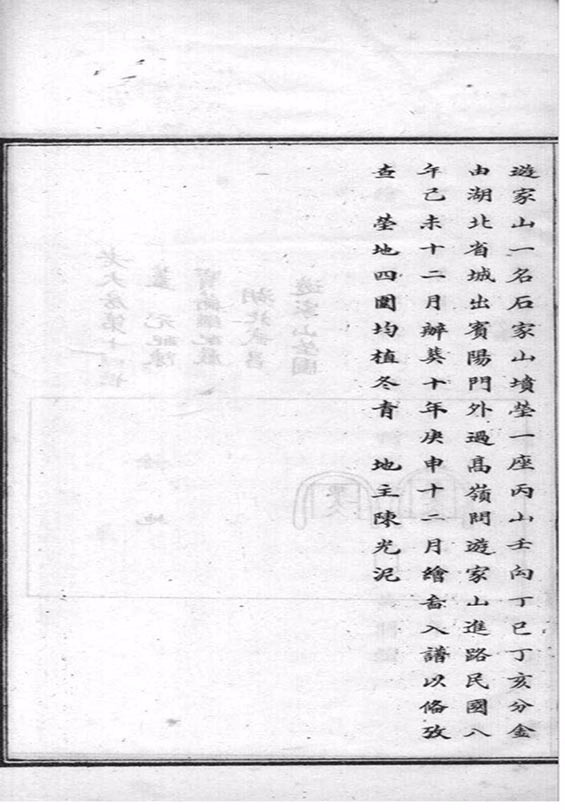 遊家山一名石家山墳塋一座丙山壬向丁巳丁亥分金
由湖北省城出賓陽門外過高嶺問遊家山進路民國八
年己未十二月辦葬十年庚申十二月繪畬入譜以俻攷
查 塋地四圍均植冬青 地主陳光泥